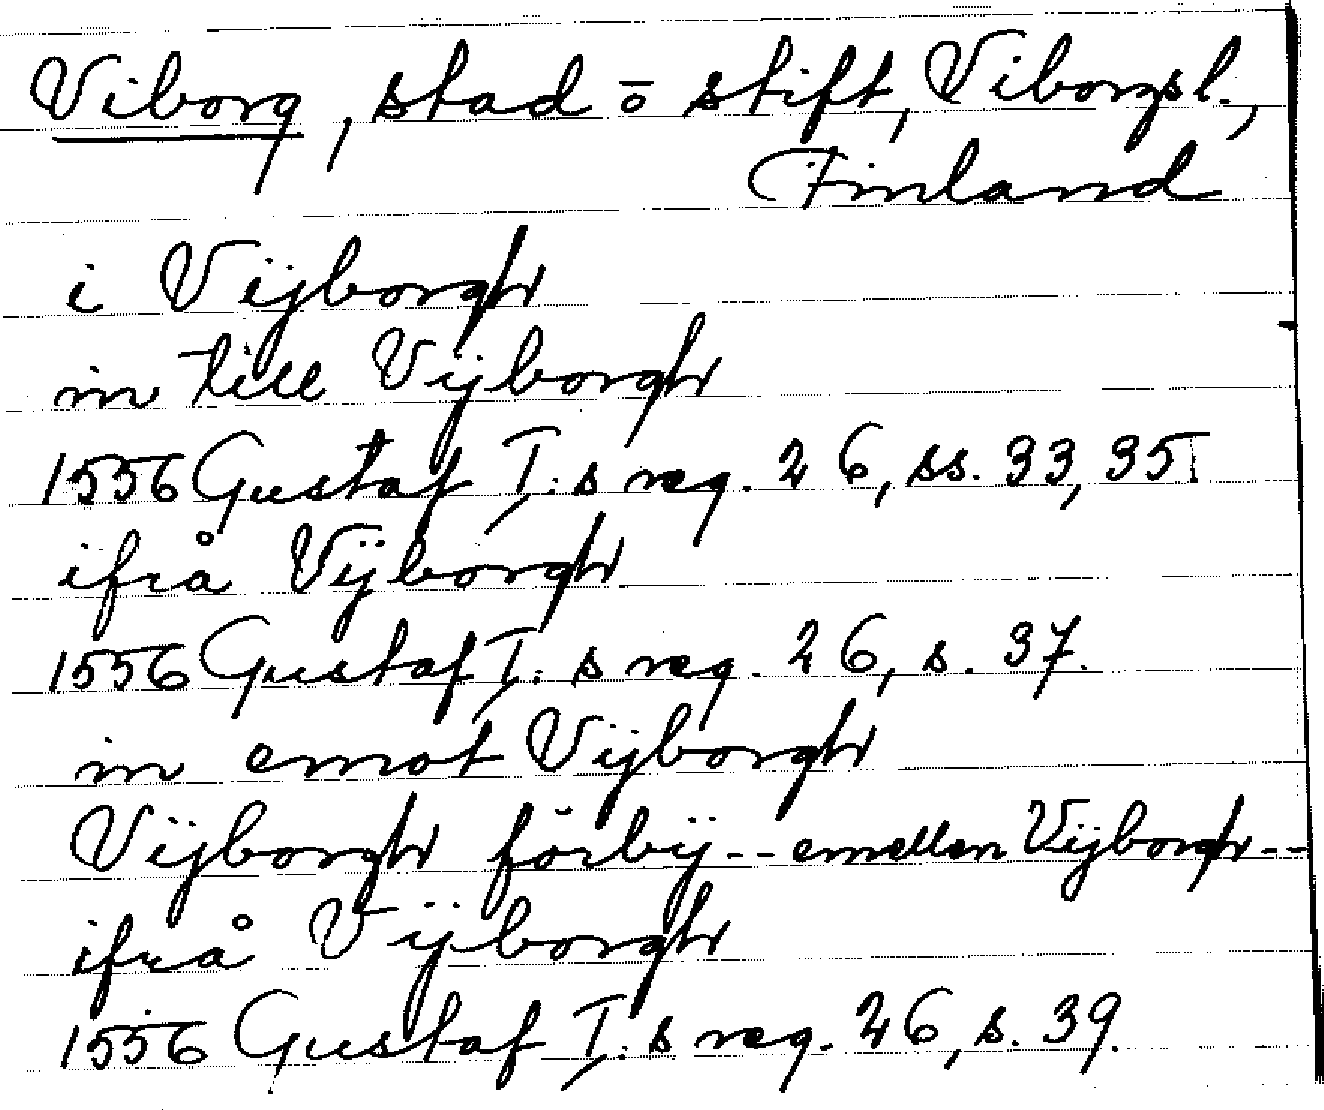 Viborg, stad o stift, Viborgsl.,
Finland
i Vijborgh
in till Vijborgh
1556 Gustaf I:s reg. 26, ss. 33, 35.
ifrå Vijborgh
1556 Gustaf I:s reg. 26, s. 37.
in emot Vijborgh
Vijborgh förbij -- emellen Vijborgh --
ifrå Vijborgh
1556 Gustaf I:s reg. 26, s. 39.